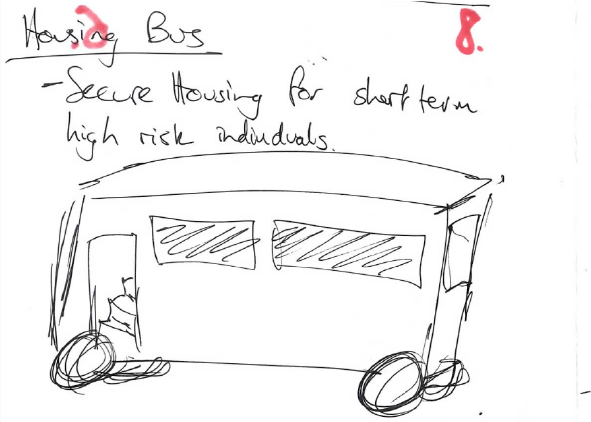 Housing Bus
8.
- Secure Housing for short term
high risk individuals.